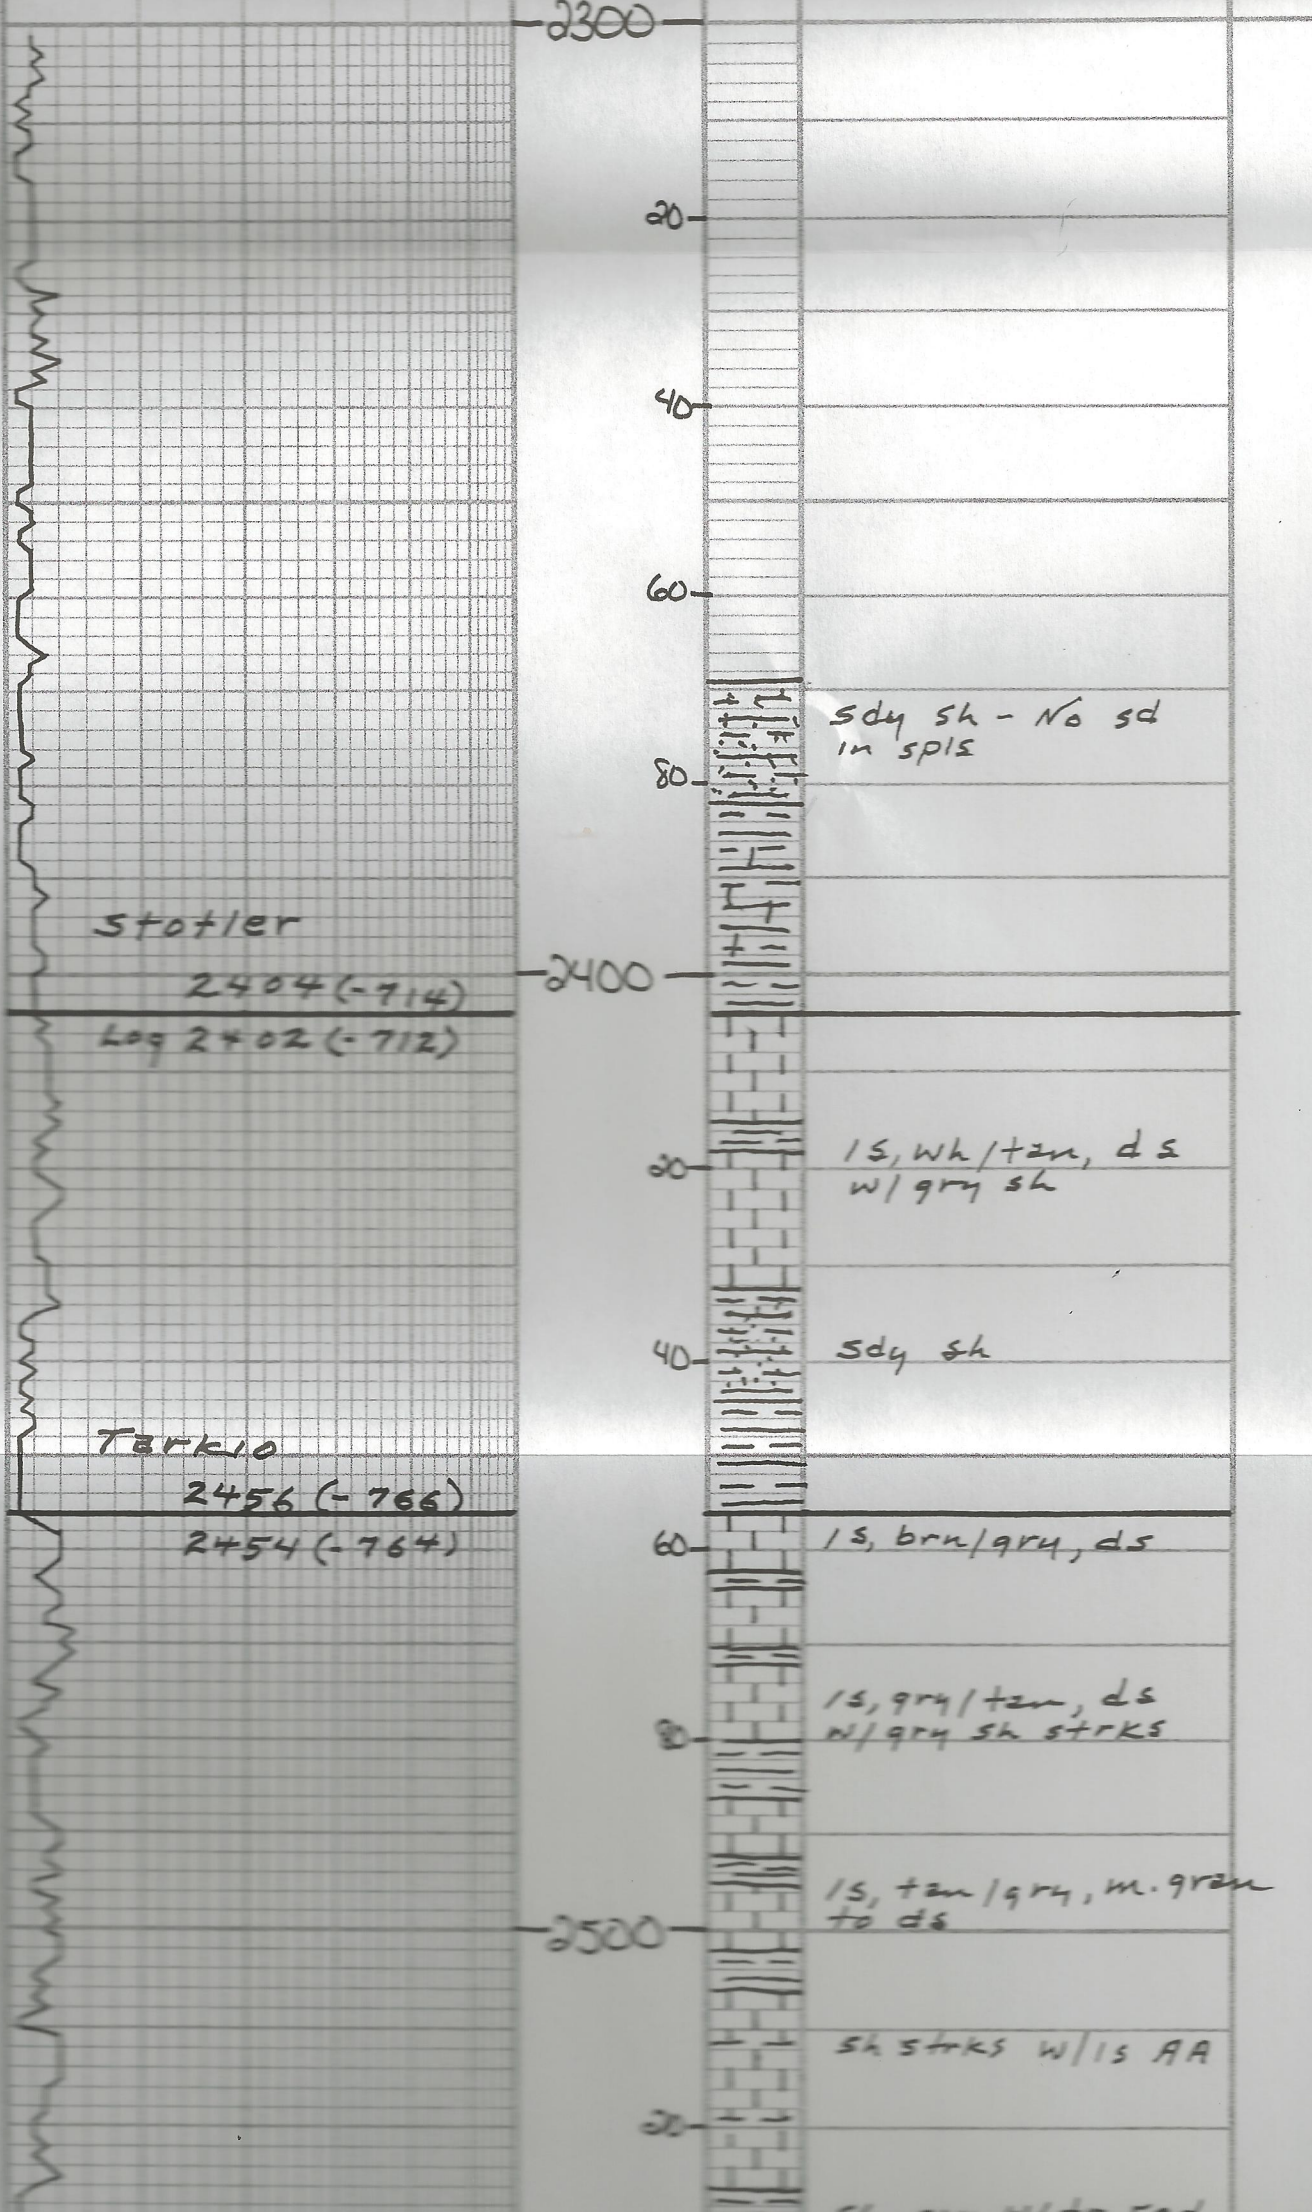 2300
20
40
60
sdy sh - No sd
in spls
80
Stotler
2400
2404 (-714)
Log 2402 (-712)
ls, wh/tan, ds
20
w/ gry sh
40
sdy sh
Tarkio
2456 (-766)
2454 (-764)
60
ls, brn/gry, ds
ls, gry/tan, ds
80
w/gry sh strks
ls, tan/gry, m. gran
to ds
2500
sh strks w/ls AA
20